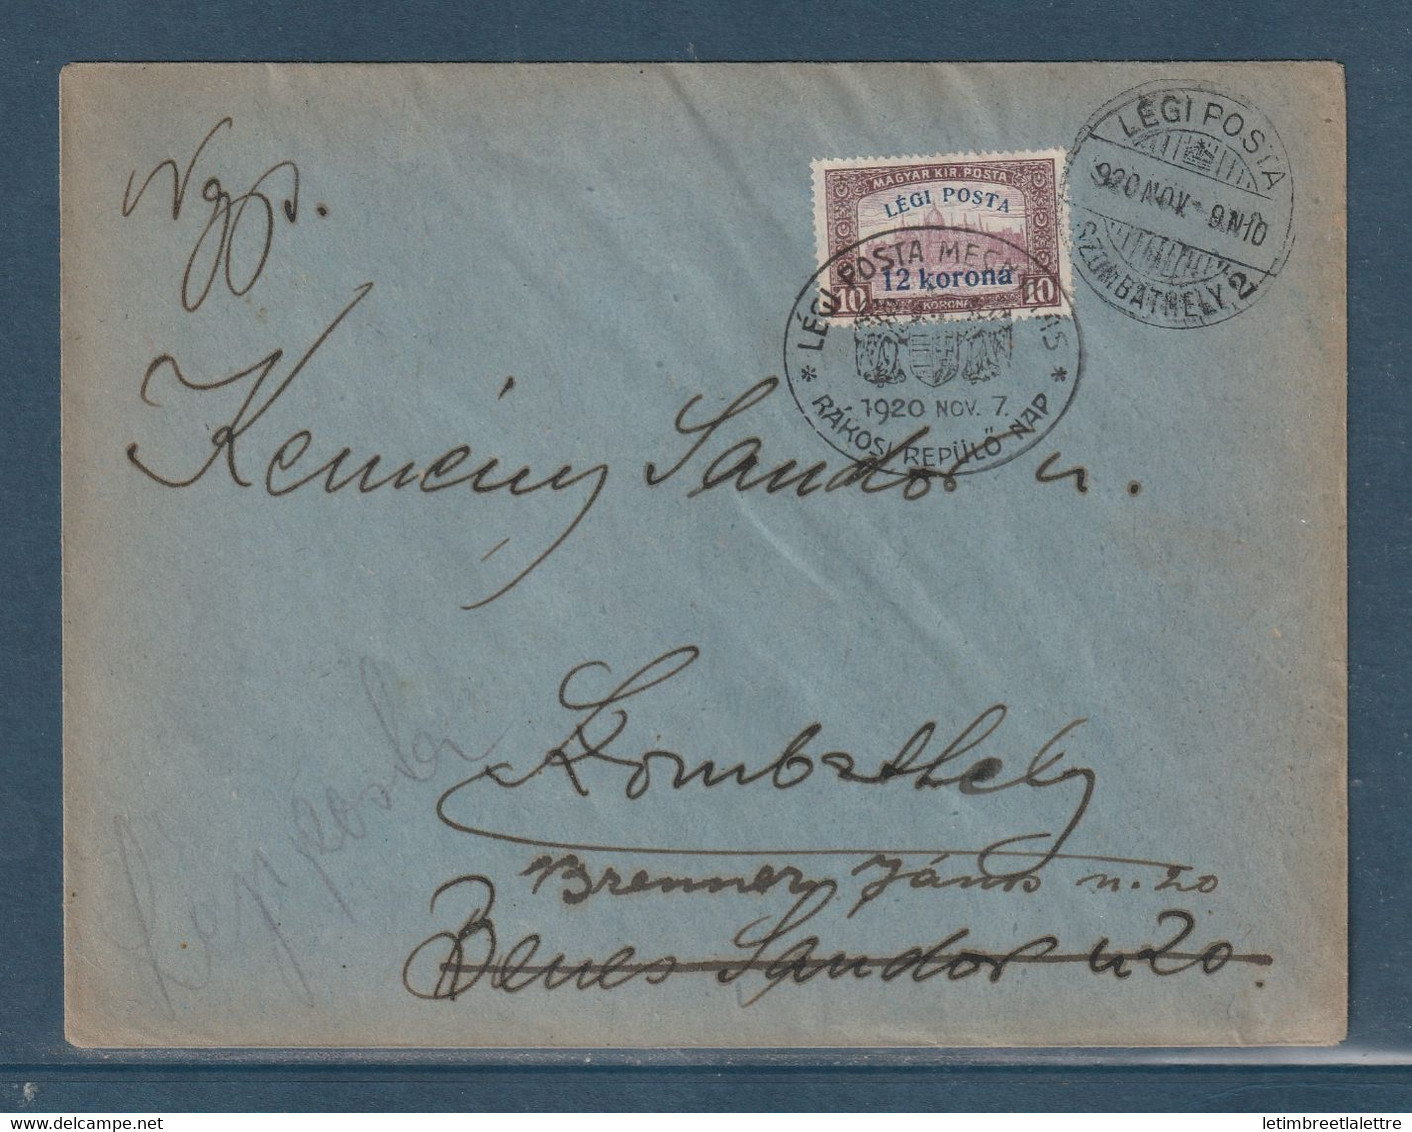 Ngys.
LÉGI POSTA
920 NOV - 9.N10
SZOMBATHELY 2
MAGYAR KIR. POSTA
LÉGI POSTA
12 korona
10 KORONA 10
* LÉGI POSTA MEG *
1920 NOV. 7.
RÁKOSI REPÜLŐ NAP
Kemény Sandor u.
Szombathely
Légi posta
Brenner János u. 20
Benes Sandor u 20.
letimbreetlalettre